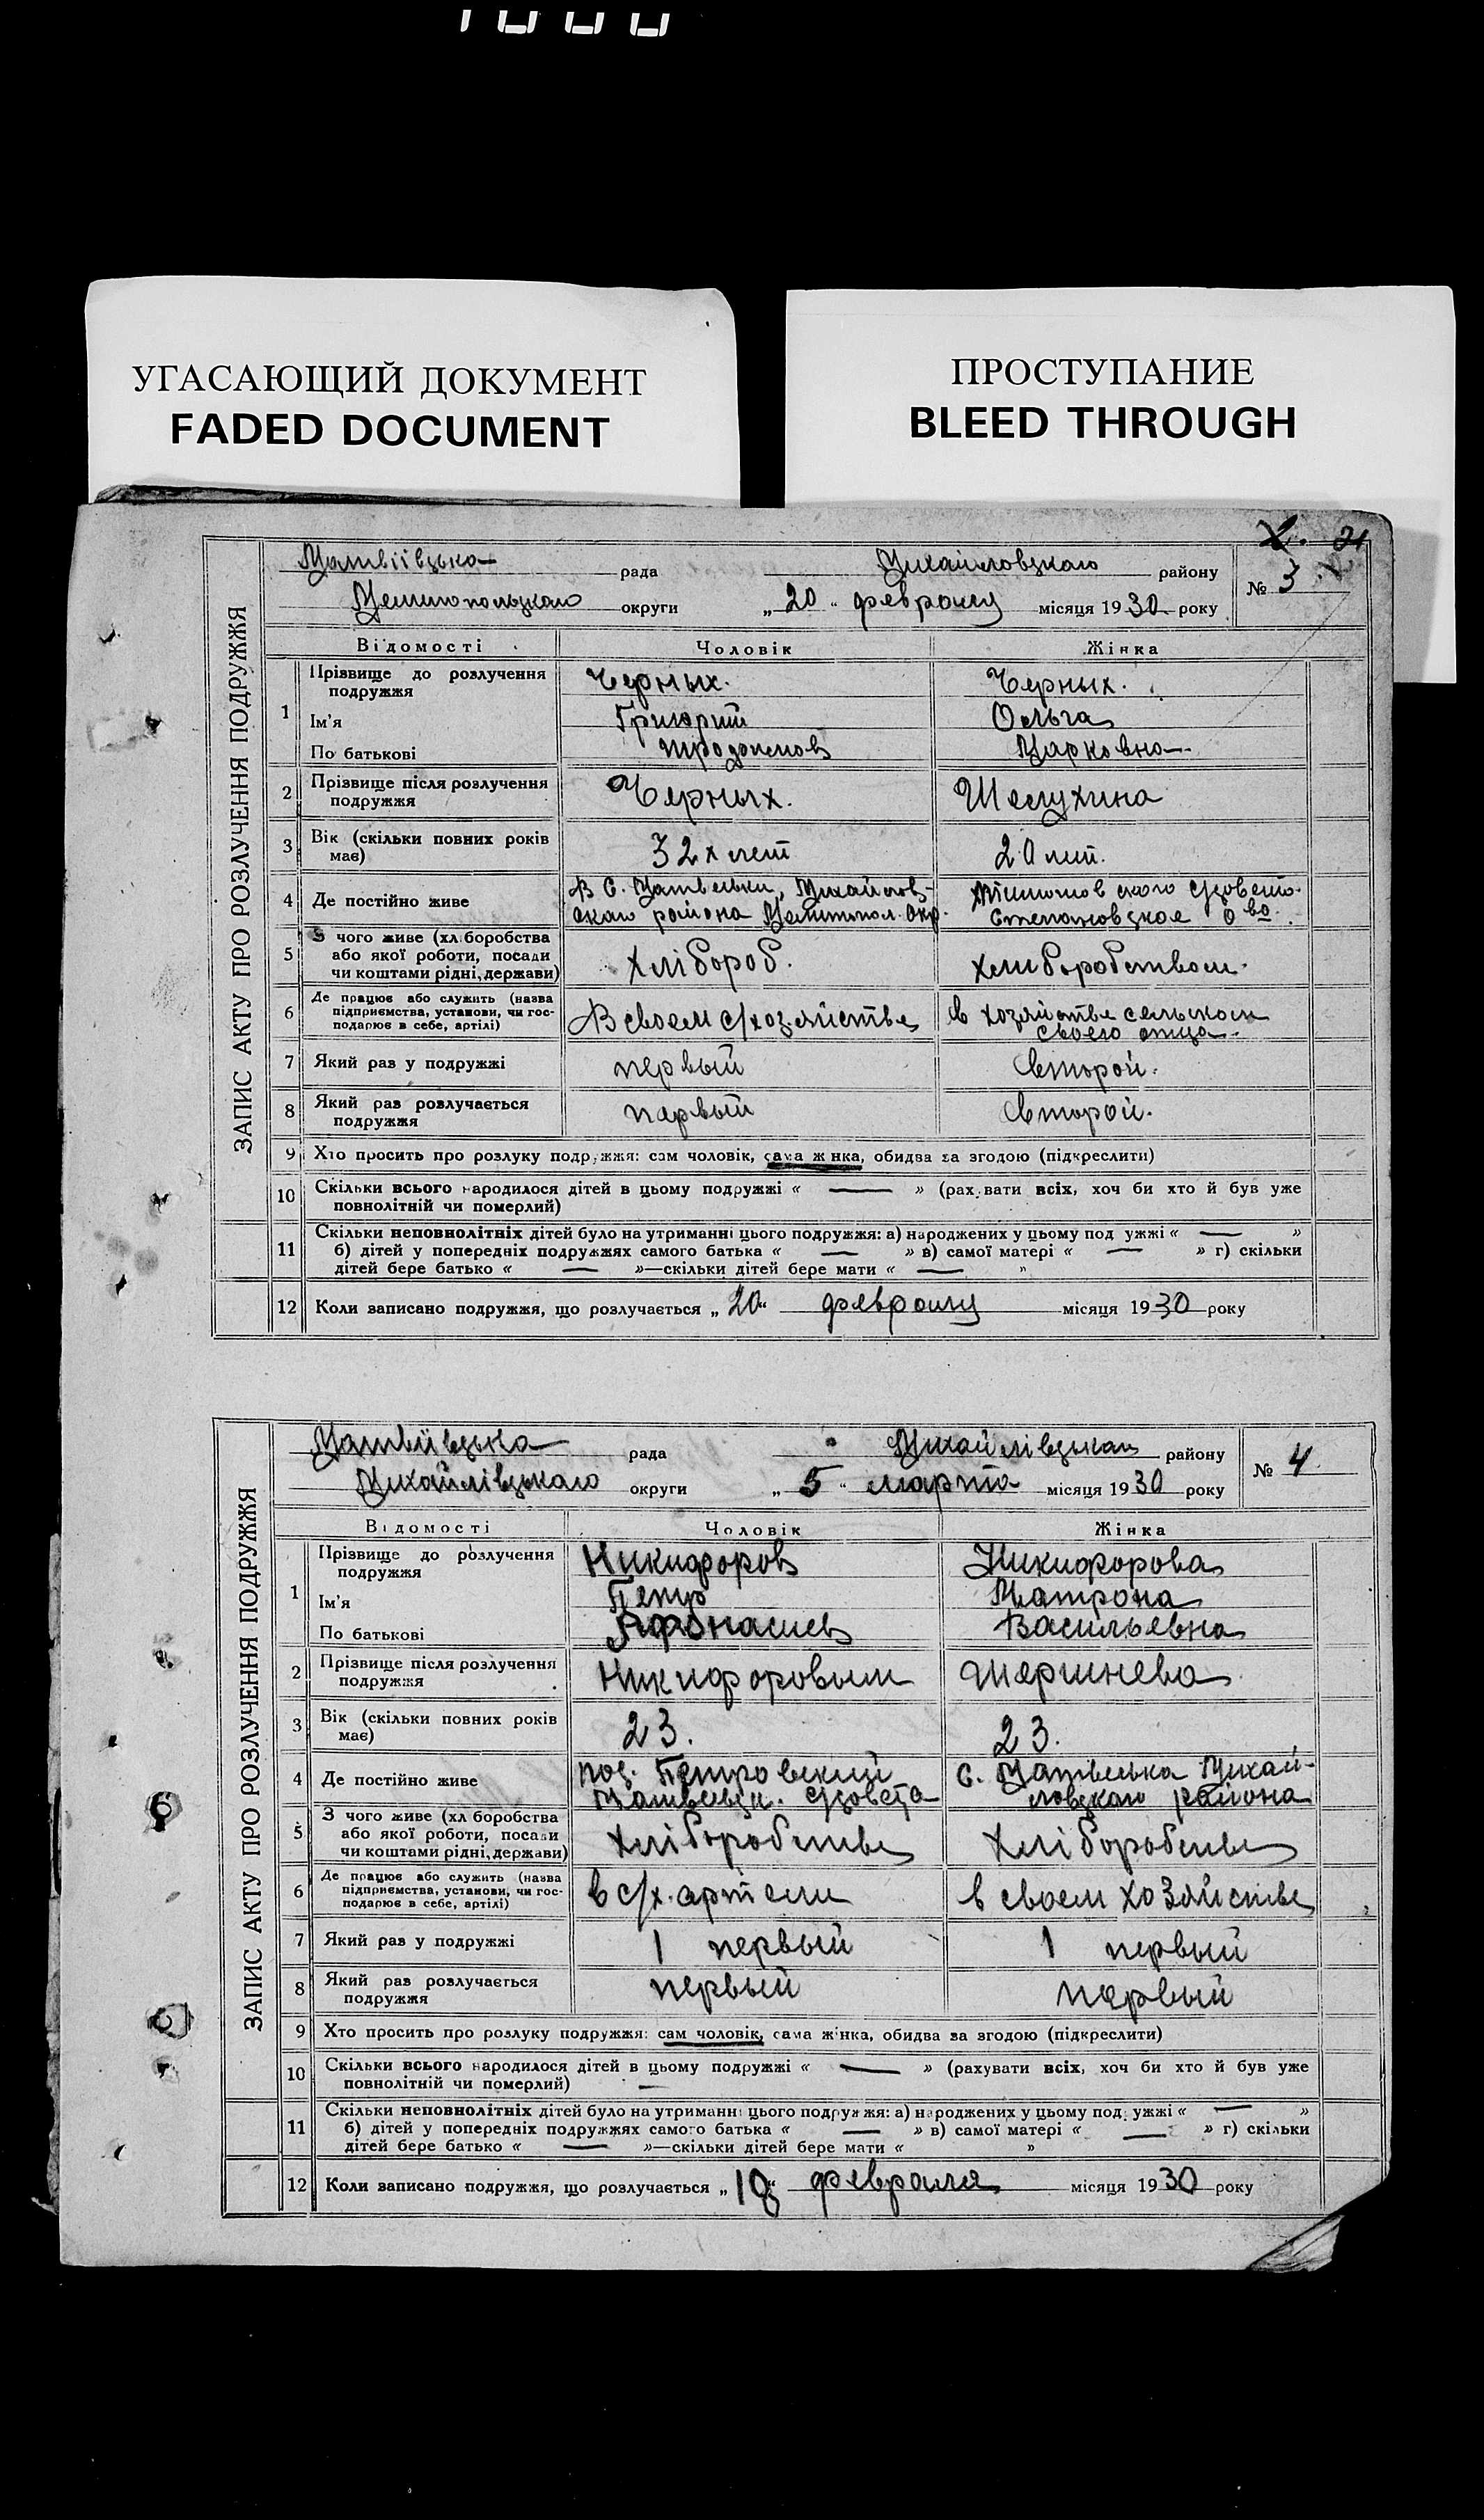 УГАСАЮЩИЙ ДОКУМЕНТ
FADED DOCUMENT
ПРОСТУПАНИЕ
BLEED THROUGH
21
ЗАПИС АКТУ ПРО РОЗЛУЧЕННЯ ПОДРУЖЖЯ
Матвіівцька рада Михайловцкаго району № 3
Мелитопольцкаго округи „20“ февраля місяця 1930 року
Відомості Чоловік Жінка
1 Прізвище до розлучення подружжя Черных. Черных.
Ім'я Григорий Ольга
По батькові Марковна
2 Прізвище після розлучення подружжя Черных. Шелухина
3 Вік (скільки повних років має) 32х лет 20 лет.
4 Де постійно живе В С. Матвевки, Михайлов- сдовета
скаго района Мелитопол. Окр. Степановцкое О во.
5 З чого живе (хліборобство
або якої роботи, посади Хлібороб. хлиборобством.
чи коштами рідні, держави)
6 Де працює або служить (назва
підприємства, установи, чи гос- В своем с/хозяйстве в хозяйстве сельском
подарює в себе, артілі) своего отца.
7 Який раз у подружжі первый второй.
8 Який раз розлучається подружжя первый второй.
9 Хто просить про розлуку подружжя: сам чоловік, сама жінка, обидва за згодою (підкреслити)
10 Скільки всього народилося дітей в цьому подружжі « — » (рахувати всіх, хоч би хто й був уже
повнолітній чи померлий)
11 Скільки неповнолітніх дітей було на утриманні цього подружжя: а) народжених у цьому подружжі « — »
б) дітей у попередніх подружжях самого батька « — » в) самої матері « — » г) скільки
дітей бере батько « — »—скільки дітей бере мати « — »
12 Коли записано подружжя, що розлучається „20“ февраля місяця 1930 року
ЗАПИС АКТУ ПРО РОЗЛУЧЕННЯ ПОДРУЖЖЯ
Матвіівцька рада Михайлівцькаго району № 4
Михайлівцькаго округи „5“ марта місяця 1930 року
Відомості Чоловік Жінка
1 Прізвище до розлучення подружжя Никифоров Никифорова
Ім'я Петр Матрона
По батькові Афонасиев Васильевна
2 Прізвище після розлучення подружжя Никифоровым Шершнева
3 Вік (скільки повних років має) 23. 23.
4 Де постійно живе пос. Петровский С. Матвевка Михай-
Матвевцк. сдовета ловцкаго района
5 З чого живе (хліборобство
або якої роботи, посади Хліборобстве Хліборобстве
чи коштами рідні, держави)
6 Де працює або служить (назва
підприємства, установи, чи гос- в с/х. артели в своем хозяйстве
подарює в себе, артілі)
7 Який раз у подружжі 1 первый 1 первый
8 Який раз розлучається подружжя первый первый
9 Хто просить про розлуку подружжя: сам чоловік, сама жінка, обидва за згодою (підкреслити)
10 Скільки всього народилося дітей в цьому подружжі « — » (рахувати всіх, хоч би хто й був уже
повнолітній чи померлий) —
11 Скільки неповнолітніх дітей було на утриманні цього подружжя: а) народжених у цьому подружжі « — »
б) дітей у попередніх подружжях самого батька « — » в) самої матері « — » г) скільки
дітей бере батько « — »—скільки дітей бере мати « »
12 Коли записано подружжя, що розлучається февраля місяця 1930 року